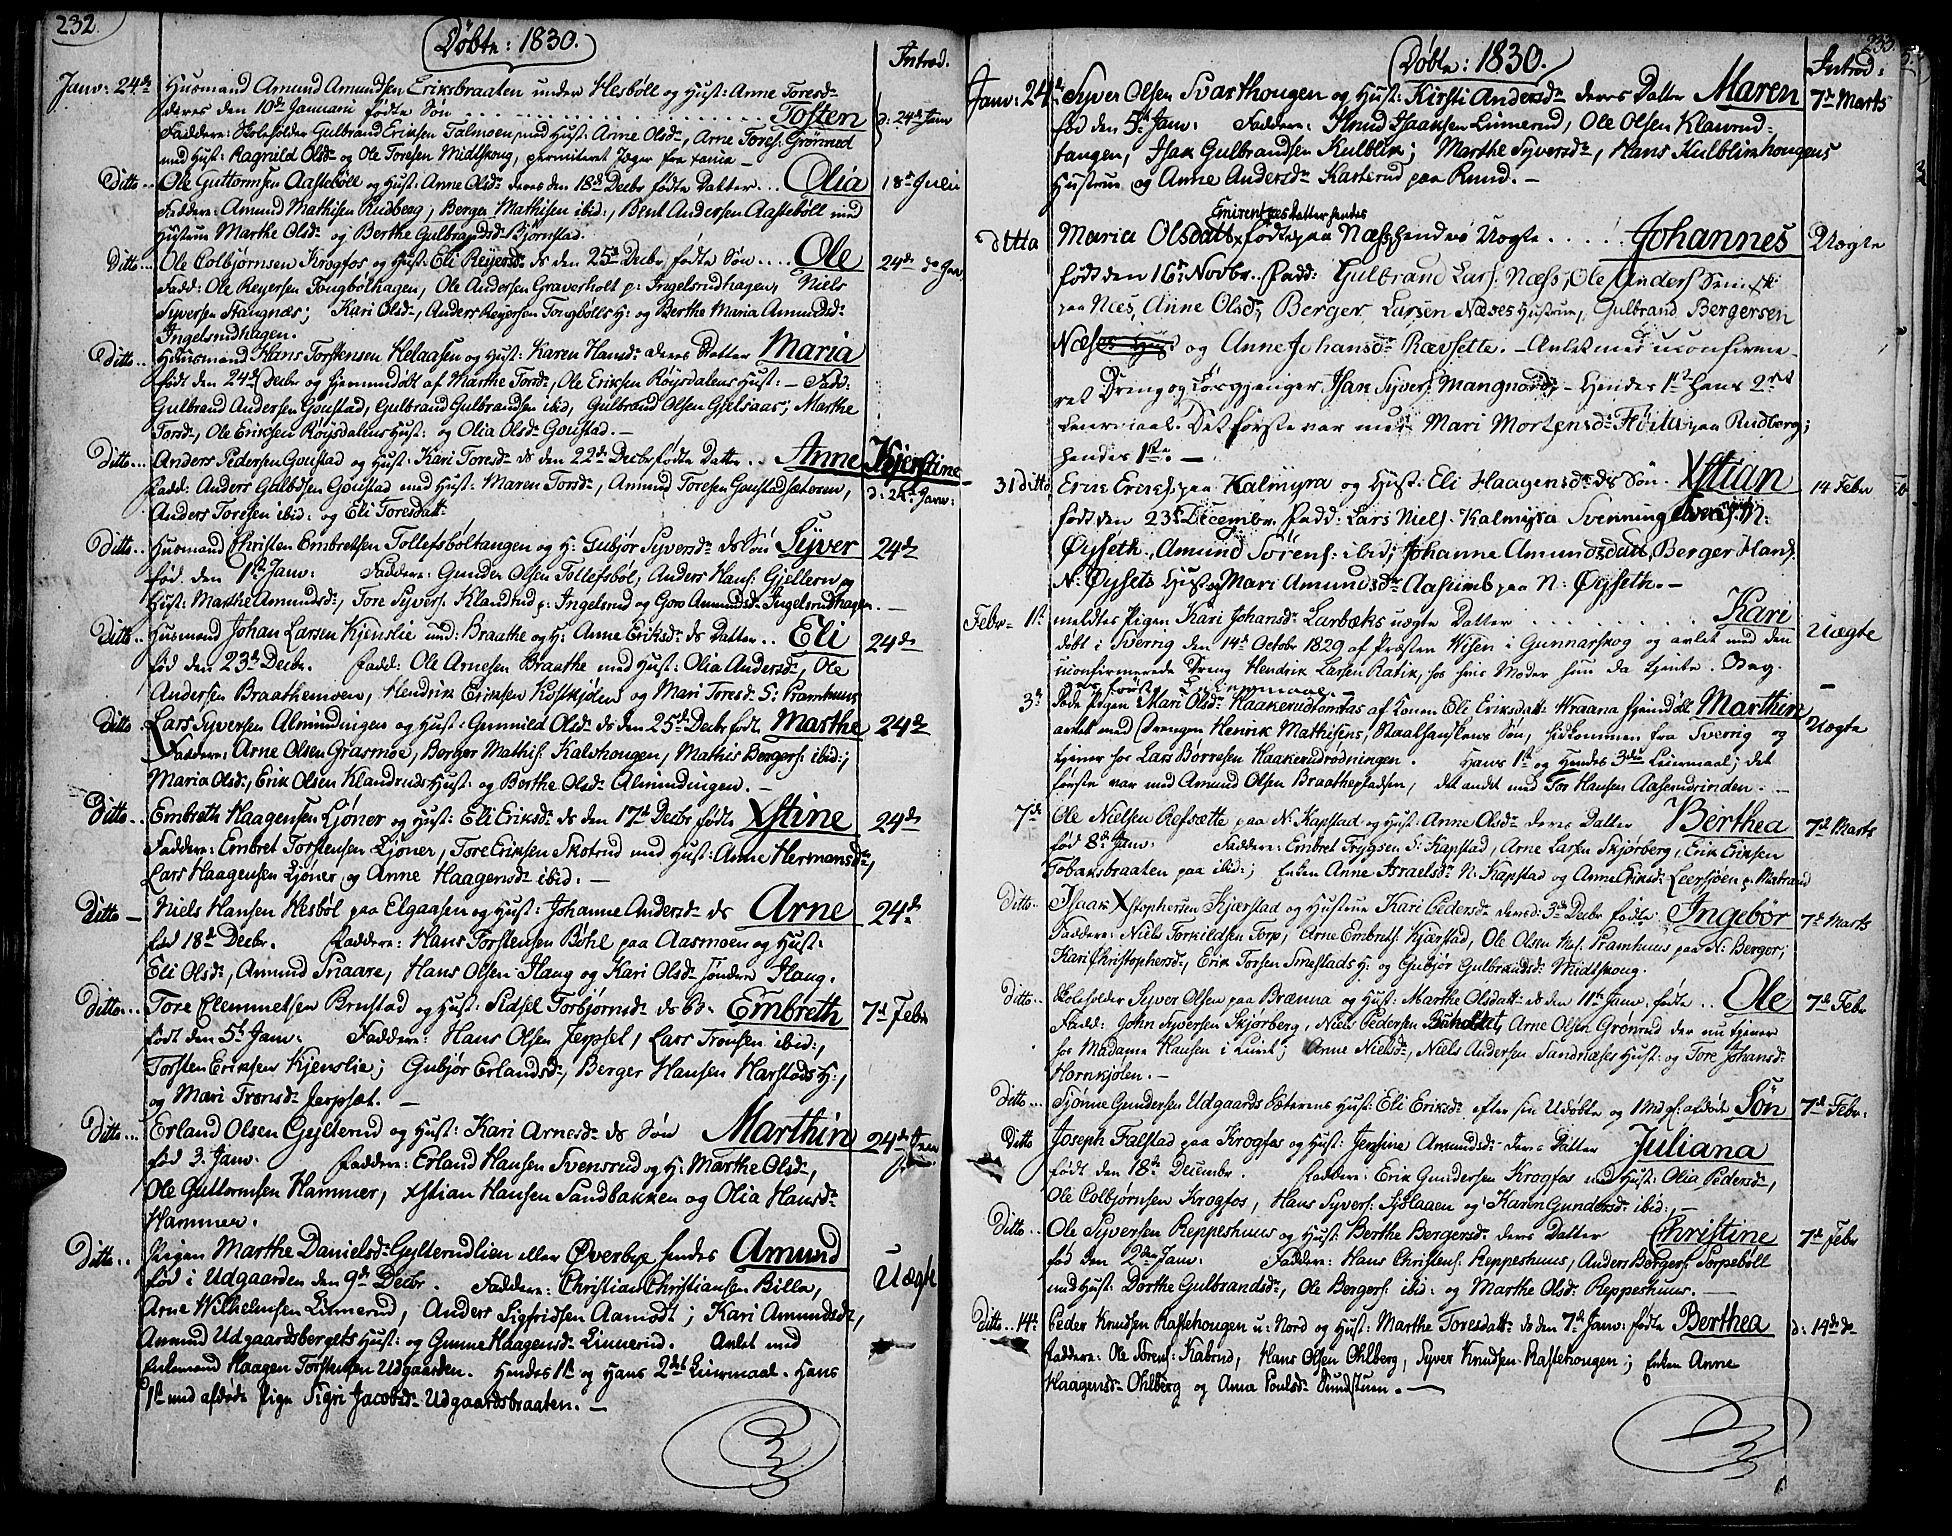 232.
Døbte: 1830.
Introd.
Janv: 24de Husmand Amund Amundsen Eriksbraaten under Hesböll og Hust: Anne Toresdr
deres den 10de Januarii fødte Søn . . . . . Tosten d: 24de Janv
Faddere: Skoleholder Gulbrand Eriksen Talmoen med Hust: Arne Olsdr, Arne Tores: Grønned
med Hust: Ragnild Olsdr og Ole Toresen Midtskoug,
Ditto .. Ole Guttormsen Aastebøll og Hust: Anne Olsdr deres den 18de Decbr fødte Datter . . . Olia 18de Julii
Faddere: Amund Mathisen Rudberg, Berger Mathisen ibid:, Bent Andersen Aastebøll med
Hustrue Marthe Olsdr og Berthe Gulbrandsdr Bjørnstad.
Ditto ... Ole Colbjørnsen Krogfos og Hust: Eli Reyersdr ds den 25de Decbr fødte Søn .... Ole 24de Janv
Fadd: Ole Reyersen Tougbölhagen, Ole Andersen Graverholt p: Ingelsrudhagen, Niels
Syversen Stangnæs; Kari Olsdr, Anders Reyersen Tougbölls H: og Berthe Maria Amundsdr
Ingelsrudhagen.
Ditto .. Huusmand Hans Torstensen Helaasen og Hust: Karen Hansdr deres Datter Maria
født den 24de Decbr og hjemmedøbt af Marthe Torsdr, Ole Eriksen Röysdalens Hust: — Fadd:
Gulbrand Andersen Goustad, Gulbrand Gulbrandsen ibid, Gulbrand Olsen Gjelsaas; Marthe
Torsdr, Ole Eriksen Röysdalens Hust: og Olia Olsdr Goustad. —
Ditto ... Anders Pedersen Goustad og Hust: Kari Toresdr ds den 22de Decbr fødte Datter .. Anne Kjerstine
Fadd: Anders Gulbrdsen Goustad med Hust: Maren Torsdr, Amund Toresen Goustadsætoren, d: 24de Janv:
Anders Toresen ibid: og Eli Toresdatt:
Ditto .. Husmand Christen Embretsen Tollefsböltangen og H: Gubjør Syversdr ds Søn Syver 24de
fød. den 1ste Janv: Faddere: Gunder Olsen Tollefsböl, Anders Hans: Gjellern og
Hust: Marthe Amundsdr, Tore Syvers: Klandrud p: Ingelsrud og Goro Amundsdr Ingelsrudhagen. —
Ditto .. Husmand Johan Larsen Kjenslie und: Braathe og H: Anne Eriksdr ds Datter .. Eli 24de
fød den 23de Decbr. Fadd: Ole Arnesen Braathe med Hust: Olia Andersdr, Ole
Andersen Braathemoen, Hendrik Eriksen Kostkjølen og Mari Toresdr S: Pramhuus
Ditto . Lars Syversen Almindingen og Hust: Gunnild Olsdr ds den 25de Decbr født Marthe 24de
Faddere: Arne Olsen Grasmoe, Berger Mathis: Kalvhougen, Mathis Bergers: ibid:;
Maria Olsdr, Erik Olsen Klandruds Hust: og Berthe Olsdr Almindingen. —
Ditto .. Embreth Haagensen Ljöner og Hust: Eli Eriksdr ds den 17de Decbr fødte Xstine 24de
Faddere: Embret Torstensen Ljöner, Tore Eriksen Skotrud med Hust: Anne Hermansdr,
Lars Haagensen Ljöner og Anne Haagensdr ibid: —
Ditto — Niels Hansen Hesböl paa Elgaasen og Hust: Johanne Andersdr ds Arne 24de
fød 18de Decbr. Faddere: Hans Torstensen Böhl paa Aasmoen og Hust:
Eli Olsdr, Amund Snaare, Hans Olsen Haug og Kari Olsdr søndere Haug.
Ditto ... Tore Clemmetsen Brustad og Hust: Sidsel Torbjørnsdr ds B. Embreth 7de Febr
født den 5te Janv. Faddere: Hans Olsen Jerpset, Lars Tronsen ibid:,
Torsten Eriksen Kjenslie; Gubjør Erlandsdr, Berger Hansen Harstads H:,
og Mari Tronsdr Jerpset. —
Ditto ... Erland Olsen Gylterud og Hust: Kari Arnesdr ds Søn Marthin 24de Janv
fød 3. Janv. Faddere: Erland Hansen Svensrud og H: Marthe Olsdr,
Ole Guttormsen Hammer, Xstian Hansen Sandbakken og Olia Hansdr
Hammer.
Ditto .. Pigen Marthe Danielsdr Gylterudlien eller Øverbye hendes Amund Uægte
fød i Udgaarden den 9de Decbr. Faddere: Christian Christiansen Billa,
Arne Wilhelmsen Linnerud, Anders Sigfridsen Aamodt; Kari Amundsdr,
Amund Udgaardsbergets Hust: og Gunne Haagensdr Linnerud. Avlet med
Enkemand Haagen Torstensen Udgaarden. Hendes 1ste og Hans 2det Leiermaal. Hans
1ste med afdøde Pige Sigri Jacobsdr Udgaardsbraaten. —
233.
Døbte: 1830.
Introd:
Janv: 24de Syver Olsen Svarthougen og Hust: Kirsti Andersdr deres Datter Maren 7de Marts
fød den 5te Janv. Faddere: Knud Isaksen Linnerud, Ole Olsen Klanrud-
tangen, Isak Gulbrandsen Kulblik; Marthe Syversdr, Hans Kulblikhougens
Hustrue og Anne Andersdr Karterud paa Rund. —
ditto Maria Olsdatt fødte paa Næss hendes Uægte . . . . . Johannes Uægte
født den 16de Novbr. Fadd: Gulbrand Lars: Næss, Ole Anders
paa Næs, Anne Olsdr, Berger Larsen Næsses Hustrue, Gulbrand Bergersen
Næs og Anne Johansdr Rævsette. — Avlet med uconfirme-
ret Dreng og Løsgjenger Isak Syvers: Mangnord — Hendes 1ste Hans 2det
Leiermaal. Det første var med Mari Mortensdr paa Rudberg;
hendes 1ste. —
31 ditto Erik Eriks: paa Kalmyra og Hust: Eli Haagensdr ds Søn . Xstian 14 Febr
født den 23de Decembr. Fadd: Lars Niels: Kalmyra Svenning
Øyseth, Amund Sörens: ibid; Johanne Amundsdatt, Berger Hans:
N: Øysets Hust og Mari Amundsdr Aasumb paa N: Øyseth. —
Febr. 1ste meldtes Pigen Kari Johansdr Larbæks uægte Datter . . . . . Kari Uægte
døbt i Sverrig den 14de Octobr 1829 af Præsten Wisen i Gunnarskog og avlet med den
uconfirmerede Dreng Hendrik Larsen Ratik, hos hvis Moder hun da tjente.
første Leiermaal. —
3de Døbt Pigen Mari Olsdr Haakerudtomtas af Konen Eli Eriksdatt: Wraana hjemdøbt Marthin Uægte
avlet med Drengen Henrik Mathisens, Staalhanskens Søn, hidkommen fra Sverrig og
tjener hos Lars Børresen Haakerudrødningen. Hans 1ste og Hendes 3die Leiermaal; det
første var med Amund Olsen Braathepladsen, det andet med Tor Hansen Aaserudrinden. —
7de Ole Nielsen Refsætte paa N: Kapstad og Hust: Anne Olsdr deres Datter Berthea 7de Marts
fød 8de Janv. Faddere: Embret Trygsen S: Kapstad, Arne Larsen Skjørberg, Erik Eriksen
Tobaksbraaten paa ibid:; Enken Anne Israelsdr N: Kapstad og Anne Eriksdr Leersjøen p: Mærbrand
Ditto .. Isaak Xstophersen Kjærstad og Hustrue Kari Pedersdr deres d: 3de Decbr fødte Ingebör 7de Marts
Faddere: Niels Torkildsen Torp, Arne Embrets: Kjærstad, Ole Olsen Pramhuus paa N: Berger;
Kari Christophersdr, Erik Torsen Smestads H: og Gubjør Gulbrandsdr Midtskoug.
Ditto .. Skoleholder Syver Olsen paa Brænna og Hust: Marthe Olsdatt: ds den 11te Janv. fødte .. Ole 7de Febr
Fadd: John Syversen Skjørberg, Niels Pedersen Buholdet, Arne Olsen Grønrud der nu tjener
hos Madame Hansen i Lunt; Anne Nielsdr, Niels Andersen Sandnæses Hust: og Tore Johansdr
Hornkjölen. —
Ditto ... Tjønne Gundersen Udgaards Sæterens Hust: Eli Eriksdr efter sin Udøbte og afdøde Søn 7de Febr:
Ditto Joseph Falstad paa Krogfos og Hust: Jensine Amundsdr deres Datter Juliana
født den 18de Decembr. Faddere: Erik Gundersen Krogfos med Hust: Olia Pedersdr,
Ole Colbjørnsen Krogfos, Hans Syvers: og Karen Gundersdr ibid:, —
Ditto .. Ole Syversen Reppeshuus og Hust: Berthe Bergersdr deres Datter Christine 7de Febr
fød den 2den Janv: Faddere: Hans Christens: Reppeshuus, Anders Bergers: Torpeböll
med Hust: Dorthe Gulbrandsdr, Ole Bergers: ibid: og Marthe Olsdr Reppeshuus. —
Ditto .. 14de Peder Knudsen Rastehougen u: Nord og Hust: Marthe Toresdatt: ds den 7de Janv: fødte Berthea d: 14de ds
Faddere: Ole Sörens: Kabrud, Hans Olsen Ohlberg, Syver Knudsen Rastehougen; Enken Anne
Haagensdr Ohlberg og Anna Poulsdr Sundstuen. —